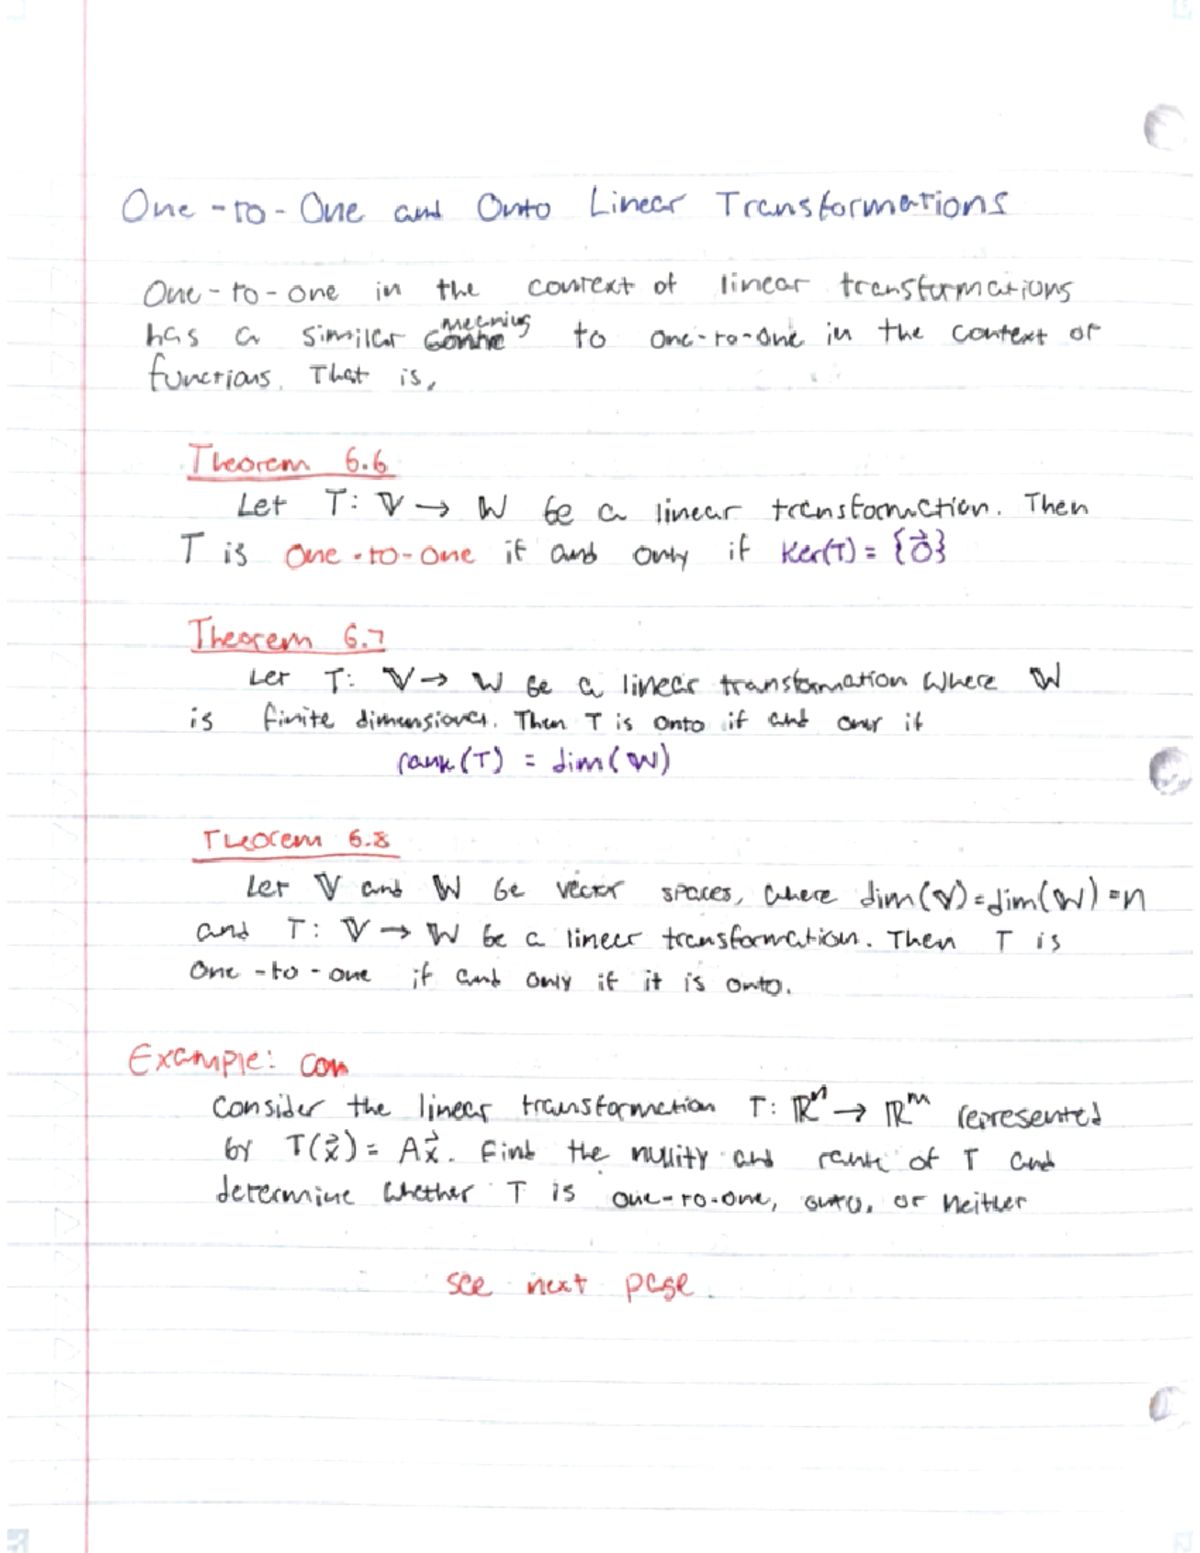 One-to-One and Onto Linear Transformations
One-to-one in the context of linear transformations
has a similar meaning to one-to-one in the context of
functions. That is,
Theorem 6.6
Let T: 𝕍 → 𝕎 be a linear transformation. Then
T is one-to-one if and only if Ker(T) = {0⃗}
Theorem 6.7
Let T: 𝕍 → 𝕎 be a linear transformation where 𝕎
is finite dimensional. Then T is onto if and only if
rank(T) = dim(𝕎)
Theorem 6.8
Let 𝕍 and 𝕎 be vector spaces, where dim(𝕍)=dim(𝕎)=n
and T: 𝕍 → 𝕎 be a linear transformation. Then T is
one-to-one if and only if it is onto.
Example: Con
Consider the linear transformation T: ℝⁿ → ℝᵐ represented
by T(x⃗) = Ax⃗. Find the nullity and rank of T and
determine whether T is one-to-one, onto, or neither
see next page.